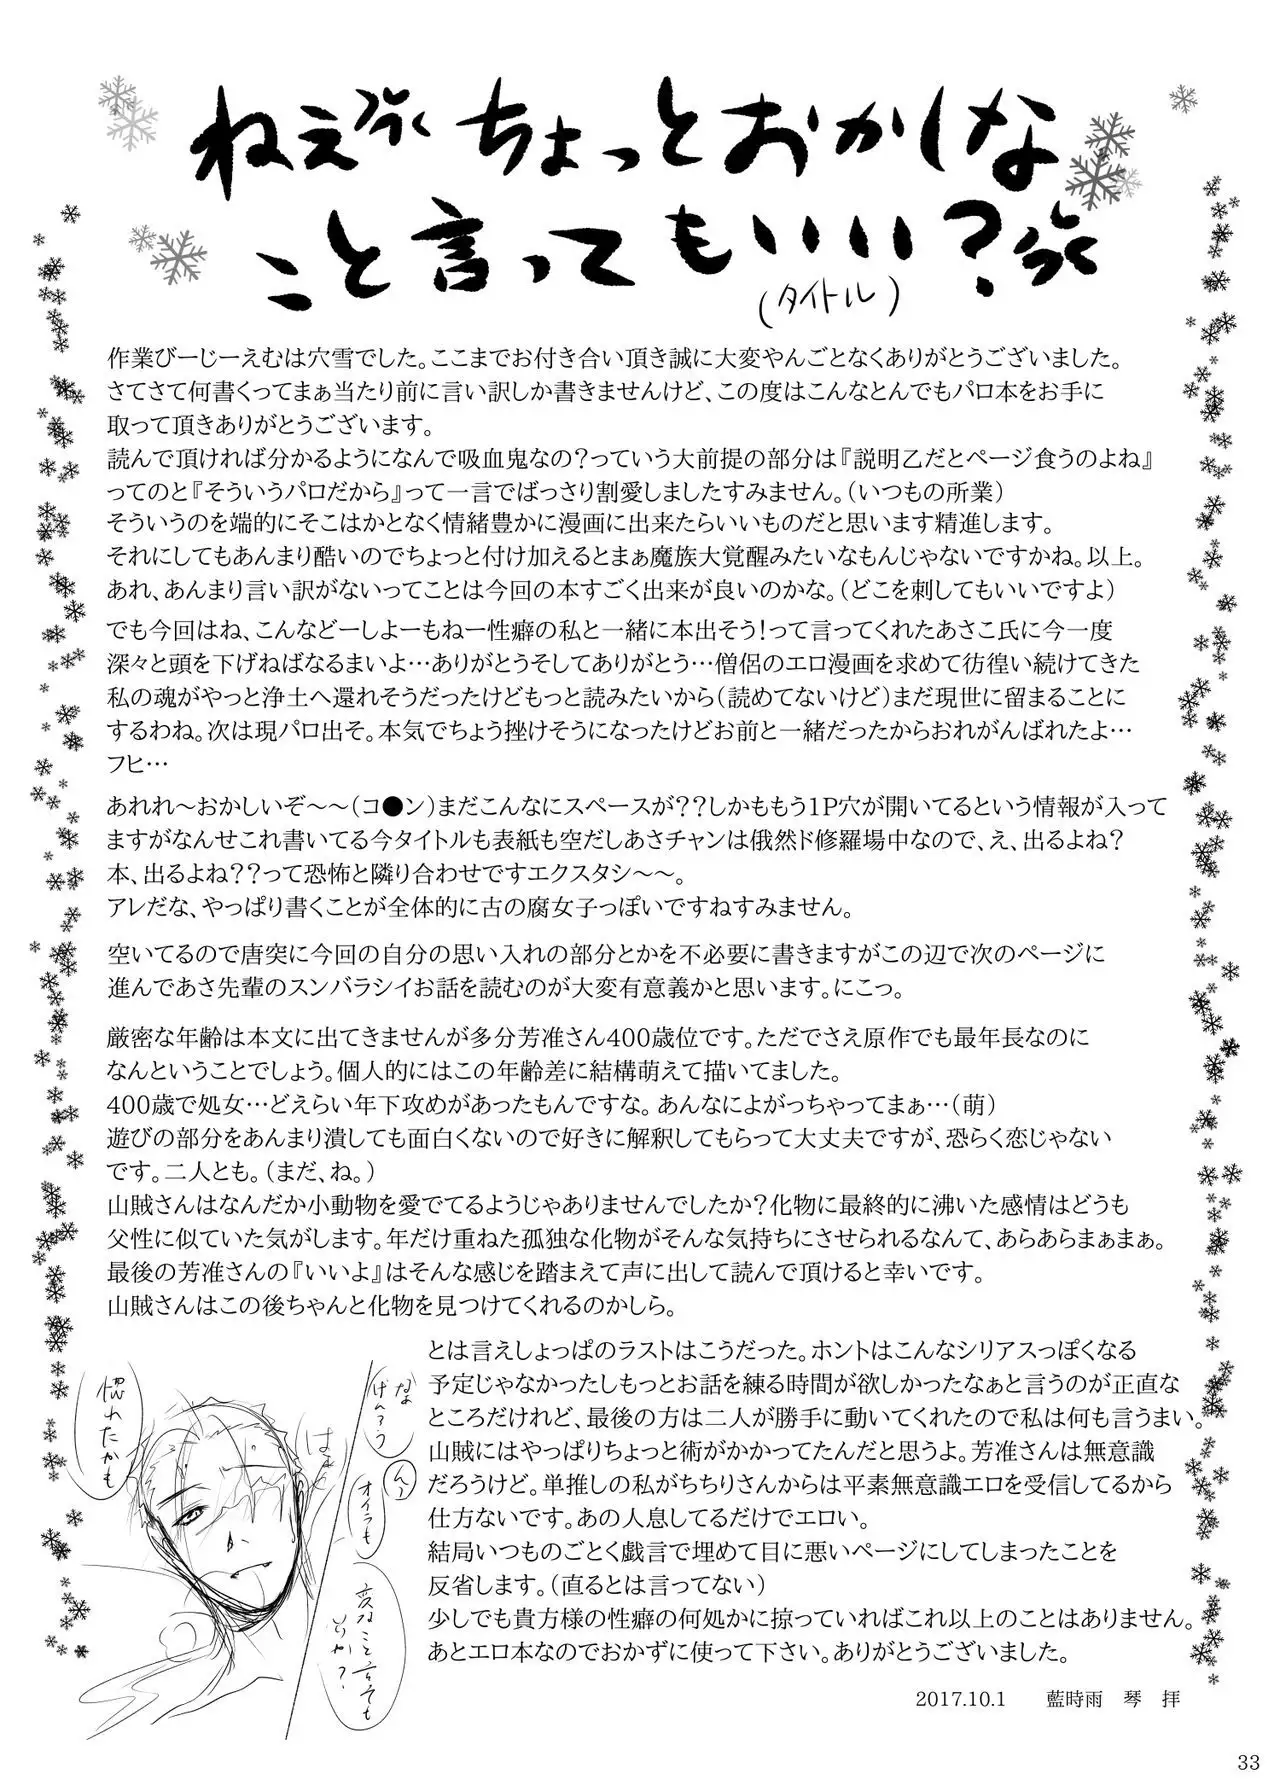 ねえ ちょっとおかしな
こと言ってもいい？
(タイトル)
作業びーじーえむは穴雪でした。ここまでお付き合い頂き誠に大変やんごとなくありがとうございました。
さてさて何書くってまぁ当たり前に言い訳しか書きませんけど、この度はこんなとんでもパロ本をお手に
取って頂きありがとうございます。
読んで頂ければ分かるようになんで吸血鬼なの？っていう大前提の部分は『説明乙だとページ食うのよね』
ってのと『そういうパロだから』って一言でばっさり割愛しましたすみません。（いつもの所業）
そういうのを端的にそこはかとなく情緒豊かに漫画に出来たらいいものだと思います精進します。
それにしてもあんまり酷いのでちょっと付け加えるとまぁ魔族大覚醒みたいなもんじゃないですかね。以上。
あれ、あんまり言い訳がないってことは今回の本すごく出来が良いのかな。（どこを刺してもいいですよ）
でも今回はね、こんなどーしよーもねー性癖の私と一緒に本出そう！って言ってくれたあさこ氏に今一度
深々と頭を下げねばなるまいよ…ありがとうそしてありがとう…僧侶のエロ漫画を求めて彷徨い続けてきた
私の魂がやっと浄土へ還れそうだったけどもっと読みたいから（読めてないけど）まだ現世に留まることに
するわね。次は現パロ出そ。本気でちょう挫けそうになったけどお前と一緒だったからおれがんばれたよ…
フヒ…
あれれ～おかしいぞ～～（コ●ン）まだこんなにスペースが？？しかももう1P穴が開いてるという情報が入って
ますがなんせこれ書いてる今タイトルも表紙も空だしあさチャンは俄然ド修羅場中なので、え、出るよね？
本、出るよね？？って恐怖と隣り合わせですエクスタシ～～。
アレだな、やっぱり書くことが全体的に古の腐女子っぽいですねすみません。
空いてるので唐突に今回の自分の思い入れの部分とかを不必要に書きますがこの辺で次のページに
進んであさ先輩のスンバラシイお話を読むのが大変有意義かと思います。にこっ。
厳密な年齢は本文に出てきませんが多分芳准さん400歳位です。ただでさえ原作でも最年長なのに
なんということでしょう。個人的にはこの年齢差に結構萌えて描いてました。
400歳で処女…どえらい年下攻めがあったもんですな。あんなによがっちゃってまぁ…（萌）
遊びの部分をあんまり潰しても面白くないので好きに解釈してもらって大丈夫ですが、恐らく恋じゃない
です。二人とも。（まだ、ね。）
山賊さんはなんだか小動物を愛でてるようじゃありませんでしたか？化物に最終的に沸いた感情はどうも
父性に似ていた気がします。年だけ重ねた孤独な化物がそんな気持ちにさせられるなんて、あらあらまぁまぁ。
最後の芳准さんの『いいよ』はそんな感じを踏まえて声に出して読んで頂けると幸いです。
山賊さんはこの後ちゃんと化物を見つけてくれるのかしら。
とは言えしょっぱのラストはこうだった。ホントはこんなシリアスっぽくなる
予定じゃなかったしもっとお話を練る時間が欲しかったなぁと言うのが正直な
ところだけれど、最後の方は二人が勝手に動いてくれたので私は何も言うまい。
山賊にはやっぱりちょっと術がかかってたんだと思うよ。芳准さんは無意識
だろうけど。単推しの私がちちりさんからは平素無意識エロを受信してるから
仕方ないです。あの人息してるだけでエロい。
結局いつものごとく戯言で埋めて目に悪いページにしてしまったことを
反省します。（直るとは言ってない）
少しでも貴方様の性癖の何処かに掠っていればこれ以上のことはありません。
あとエロ本なのでおかずに使って下さい。ありがとうございました。
なな
げんろう
ん？
オイラも
変なこと言っても
いいか？
惚れたかも
2017.10.1　藍時雨　琴　拝
33